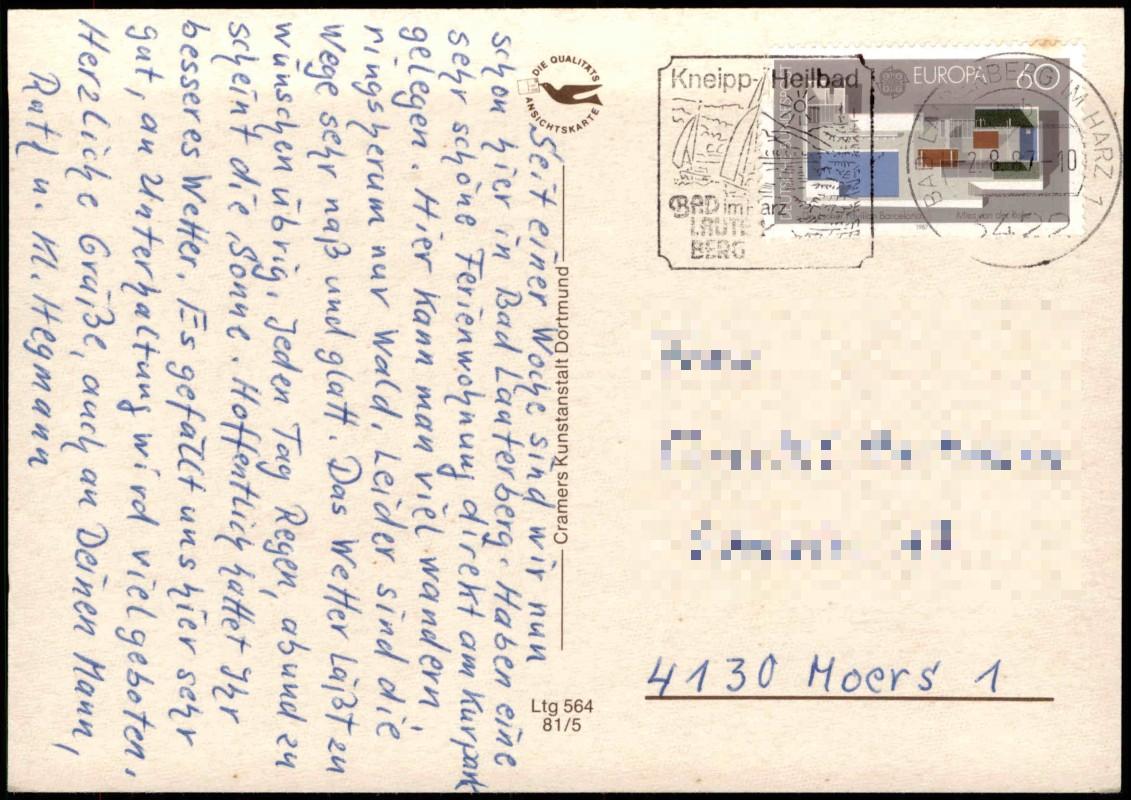 Seit einer Woche sind wir nun
schon hier in Bad Lauterberg. Haben eine
sehr schöne Ferienwohnung direkt am Kurpark
gelegen. Hier kann man viel wandern,
ringsherum nur Wald. Leider sind die
Wege sehr naß und glatt. Das Wetter läßt zu
wünschen übrig. Jeden Tag Regen, ab und zu
scheint die Sonne. Hoffentlich hattet Ihr
besseres Wetter. Es gefällt uns hier sehr
gut, an Unterhaltung wird viel geboten.
Herzliche Grüße, auch an Deinen Mann,
Ruth u. H. Hegmann
DIE QUALITÄTS
ANSICHTSKARTE
Cramers Kunstanstalt Dortmund
Ltg 564
81/5
Kneipp-Heilbad
BAD im Harz
LAUTE
BERG
EUROPA 60
Pavillon Barcelona Mies van der Rohe
1987
BAD LAUTERBERG IM HARZ 1
-2.8.87-10
3422
4130 Moers 1